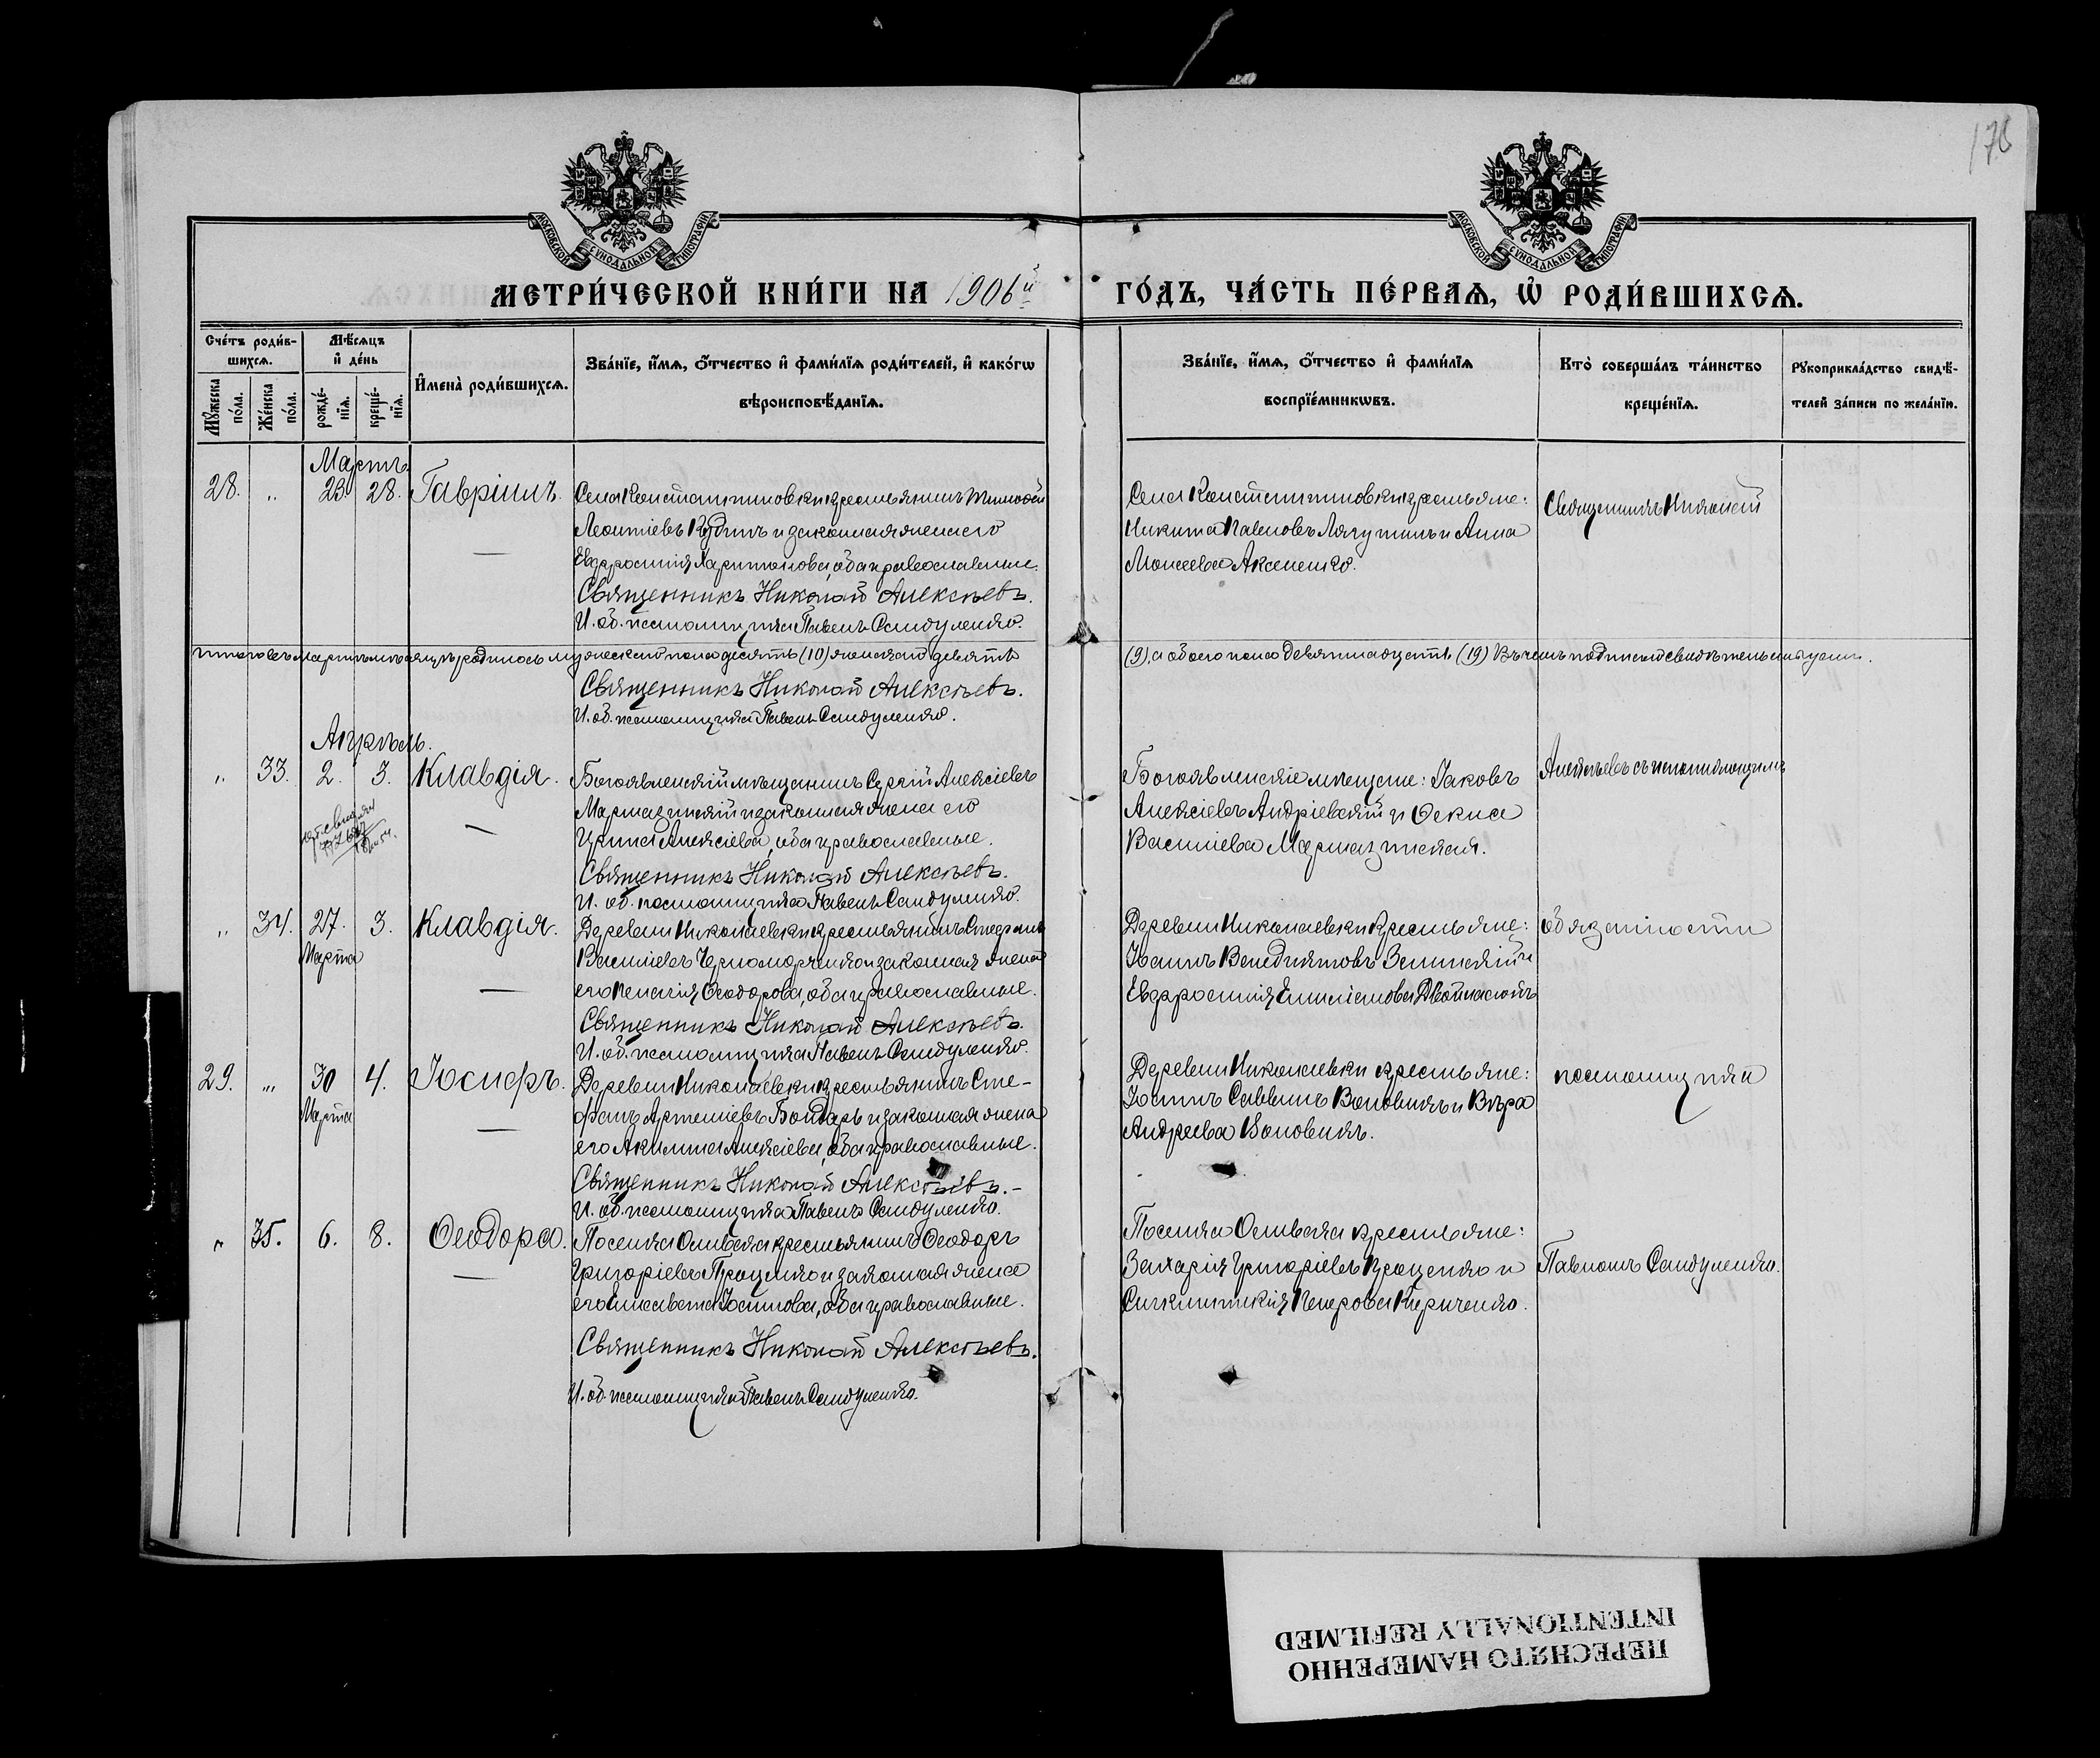 178
МОСКОВСКОЙ СѴНОДАЛЬНОЙ ТИПОГРАФІИ
МОСКОВСКОЙ СѴНОДАЛЬНОЙ ТИПОГРАФІИ
МЕТРИ́ЧЕСКОЙ КНИ́ГИ НА 1906й
ГО́ДЪ, ЧА́СТЬ ПЕ́РВАѦ, Ѡ҆ РОДИ́ВШИХСѦ.
Сче́тъ роди́в-
шихсѧ.
Мꙋ́жеска по́ла.
Же́нска по́ла.
Мѣ́сѧцъ
и҆ де́нь
рожде́-
нїѧ.
креще́-
нїѧ.
И҆мена̀ роди́вшихсѧ.
Зва́нїе, и҆́мѧ, ѻ҆́тчество и҆ фами́лїѧ роди́телей, и҆ како́гѡ
вѣроисповѣ́данїѧ.
Зва́нїе, и҆́мѧ, ѻ҆́тчество и҆ фами́лїѧ
воспрїе́мникѡвъ.
Кто̀ соверша́лъ та́инство
креще́нїѧ.
Рꙋкоприкла́дство свидѣ́-
телей за́писи по жела́нїю.
Мартъ
28. " 23. 28. Гавріилъ.
Села Константиновки крестьянинъ Тимофей
Леонтіевъ и законная жена его
Евфросинія Харитонова, оба православные.
Священникъ Николай Алексѣевъ.
И. об. псаломщика Павелъ Сандуленко.
Села Константиновки крестьяне:
Никита Павловъ Лягутинъ и Анна
Моисеева Аксененко.
Священникъ Николай
Итого въ мартѣ мѣсяцѣ родилось мужескаго пола десять (10) женскаго девять
(9), а обоего пола девятнадцать (19) въ чемъ подписомъ свидѣтельствуемъ.
Священникъ Николай Алексѣевъ.
И. об. псаломщика Павелъ Сандуленко.
Апрѣль.
" 33. 2. 3. Клавдія.
Богоявленскій мѣщанинъ Сергій Алексіевъ
Мармазинскій и законная жена его
Ирина Алексіева, оба православные.
Священникъ Николай Алексѣевъ.
И. об. псаломщика Павелъ Сандуленко.
Богоявленскіе мѣщане: Іаковъ
Алексіевъ Андріевскій и Ѳекла
Василіева Мармазинская.
Алексѣевъ съ исполняющимъ
" 34. 27. 3. Клавдія.
Марта
Деревни Николаевки крестьянинъ Стефанъ
Василіевъ Черноморченко и законная жена
его Пелагія Ѳеодорова, оба православные.
Священникъ Николай Алексѣевъ.
И. об. псаломщика Павелъ Сандуленко.
Деревни Николаевки крестьяне:
Іоаннъ Венедиктовъ Зелинскій и
Евфросинія
обязанности
29. " 30 4. Іосифъ.
Марта
Деревни Николаевки крестьянинъ Сте-
фанъ Артеміевъ Бондарь и законная жена
его Акилина Алексіева, оба православные.
Священникъ Николай Алексѣевъ.
И. об. псаломщика Павелъ Сандуленко.
Деревни Николаевки крестьяне:
Іоаннъ Саввинъ Воловикъ и Вѣра
Андреева Воловикъ.
псаломщика
" 35. 6. 8. Ѳеодора.
Поселка крестьянинъ Ѳеодоръ
Григоріевъ Проценко и законная жена
его Елисавета Іоаннова, оба православные.
Священникъ Николай Алексѣевъ.
И. об. псаломщика Павелъ Сандуленко.
Поселка крестьяне:
Захарія Григоріевъ Проценко и
Синклитикія Петрова Кириченко.
Павломъ Сандуленко.
ПЕРЕСНЯТО НАМЕРЕННО
INTENTIONALLY REFILMED